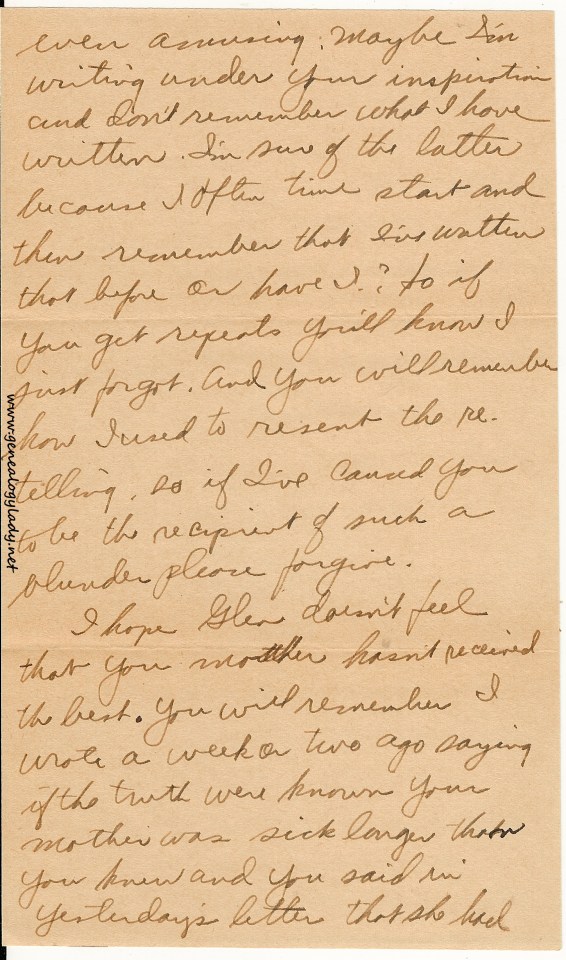 even amusing. Maybe I'm
writing under your inspiration
and don't remember what I have
written. I'm sure of the latter
because I often time start and
then remember that I've written
that before or have I.? So if
you get repeats you'll know I
just forgot. And you will remember
how I used to resent the re-
telling, so if I've caused you
to be the recipient of such a
blunder please forgive.
I hope Glen doesn't feel
that you mother hasn't received
the best. You will remember I
wrote a week or two ago saying
if the truth were known your
mother was sick longer than
you knew and you said in
yesterday's letter that she had
www.genealogylady.net